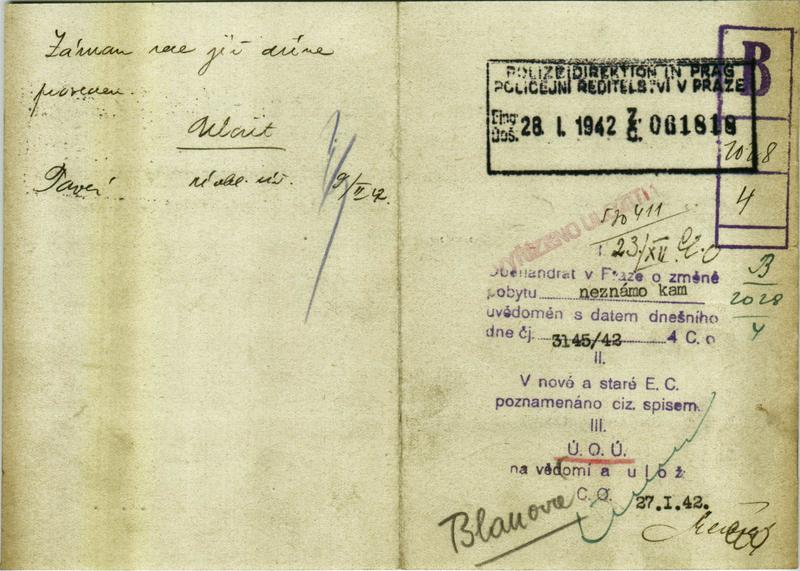 Záznam zde již dříve
proveden.
Uložit
9/II 42.
POLIZEIDIREKTION IN PRAG
POLICEJNÍ ŘEDITELSTVÍ V PRAZE
Eing. Doš. 28. I. 1942 Z. Č. 061818
B
2028
4
VYŘÍZENO
23/XII
I.
Oberlandrat v Praze o změně
pobytu neznámo kam
uvědoměn s datem dnešního
dne čj. 3145/42 4 C. o
II.
V nové a staré E. C.
poznamenáno ciz. spisem.
III.
Ú. O. Ú.
na vědomí a ulož
C. O.
27.I.42.
B
2028
4